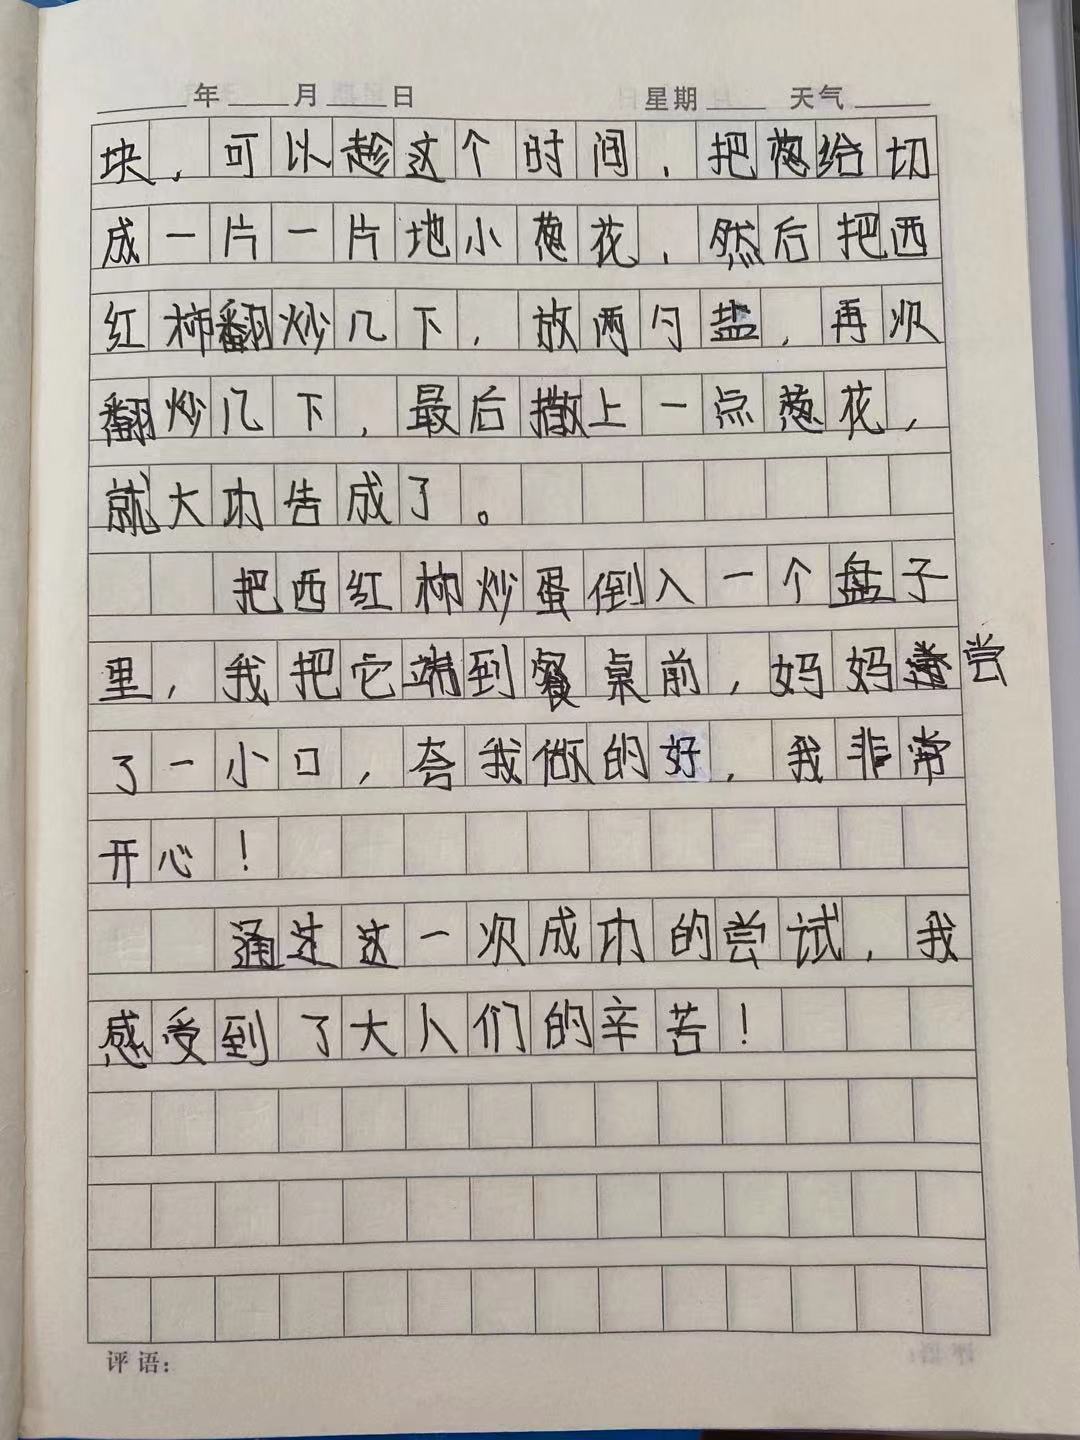 年 月 日 星期 天气
块，可以趁这个时间，把葱给切
成一片一片地小葱花，然后把西
红柿翻炒几下，放两勺盐，再次
翻炒几下，最后撒上一点葱花，
就大功告成了。
把西红柿炒蛋倒入一个盘子
里，我把它端到餐桌前，妈妈尝
了一小口，夸我做的好，我非常
开心！
通过这一次成功的尝试，我
感受到了大人们的辛苦！
评语：